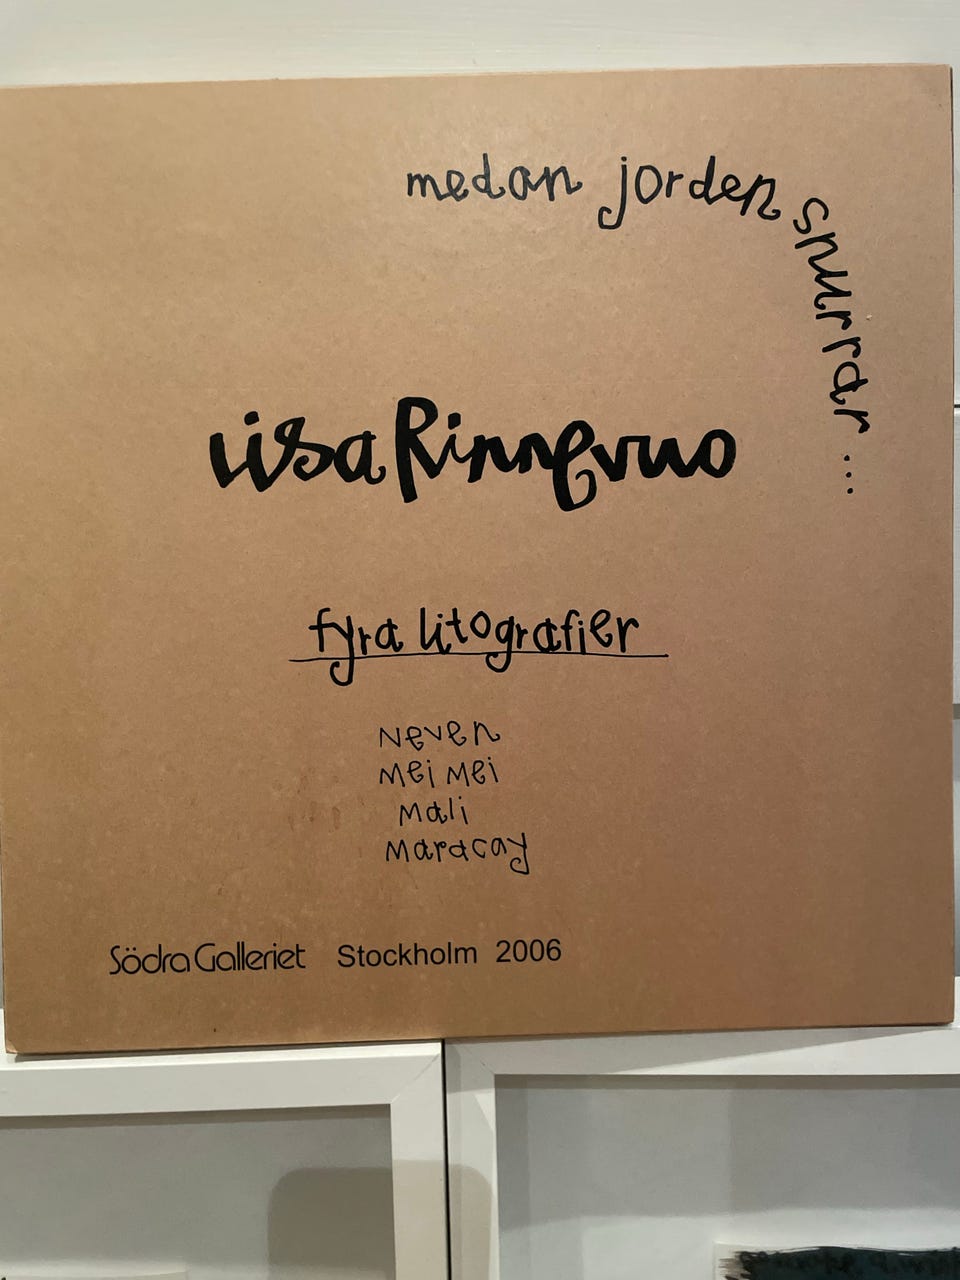 medan jorden snurrar...
Lisa Rinnevuo
fyra litografier
Neven
Mei Mei
Mali
Maracay
Södra Galleriet Stockholm 2006